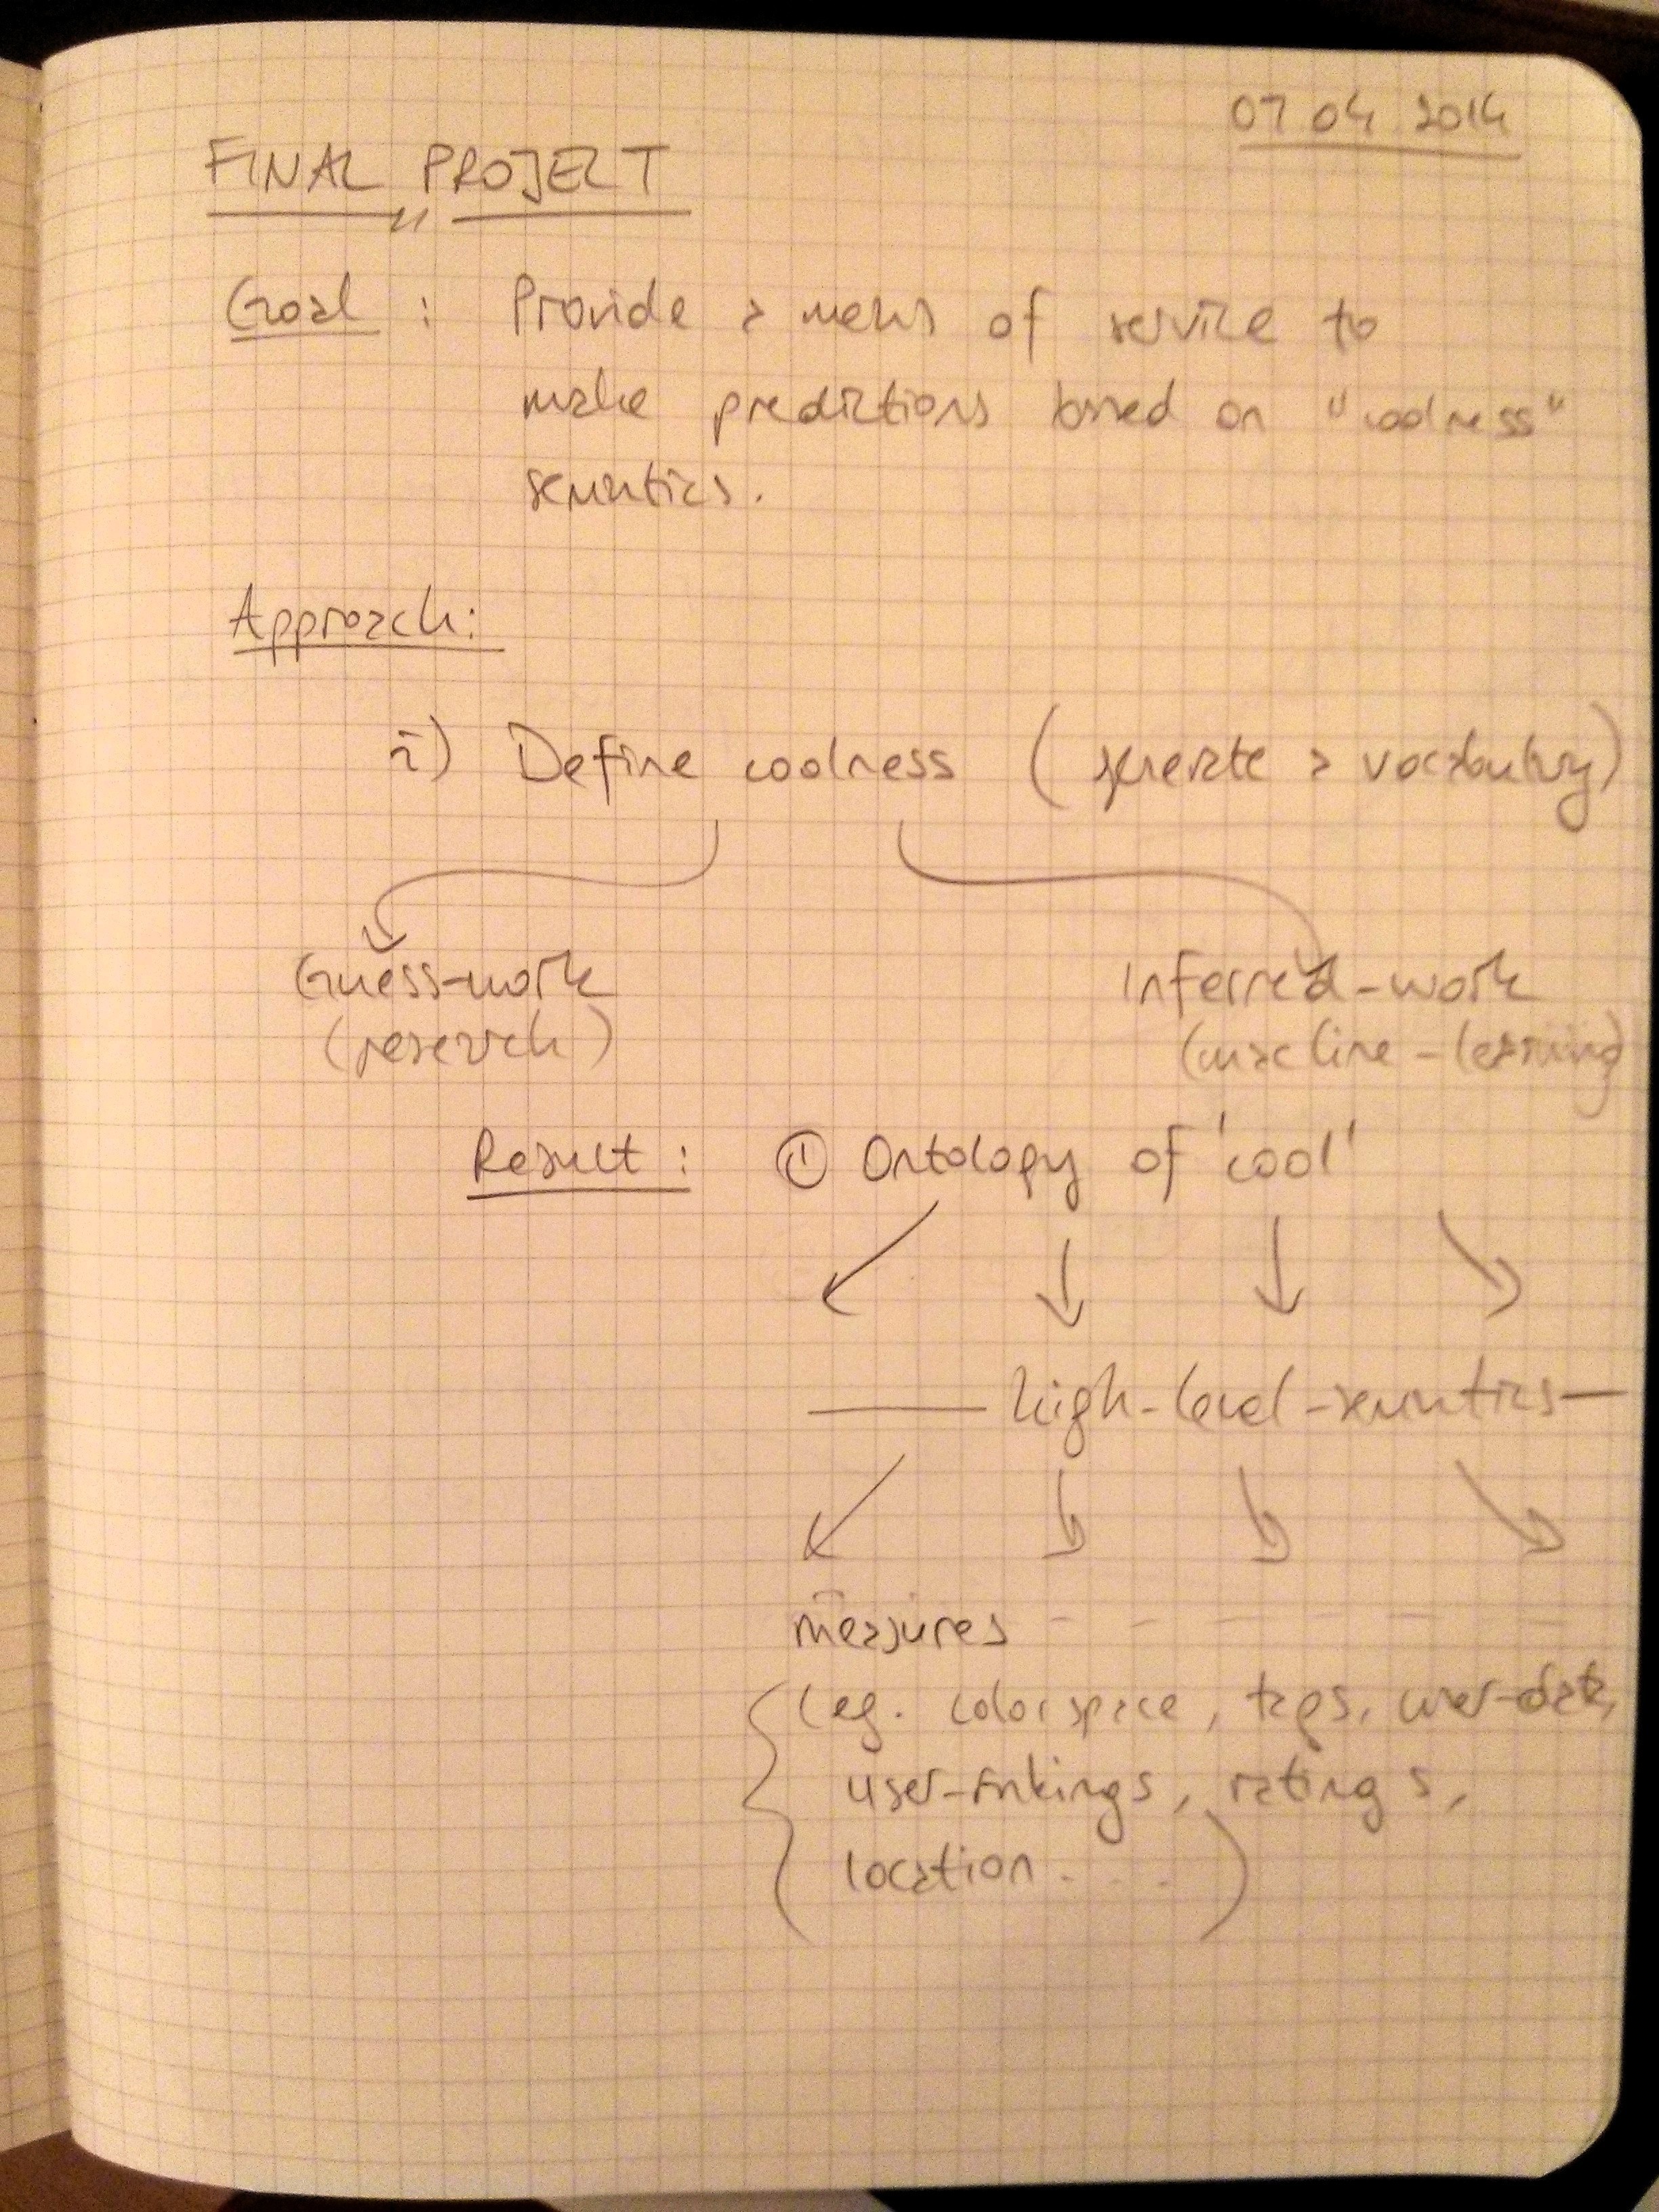 07 04 2014
FINAL PROJECT
Goal : Provide a means of service to
make predictions based on "coolness"
semantics.
Approach:
i) Define coolness (generate a vocabulary)
Guess-work
(research)
Inferred-work
(machine-learning)
Result : ① Ontology of 'cool'
high-level-semantics
measures
(eg. colorspace, tags, user-data,
user-rankings, ratings,
location . . . . )